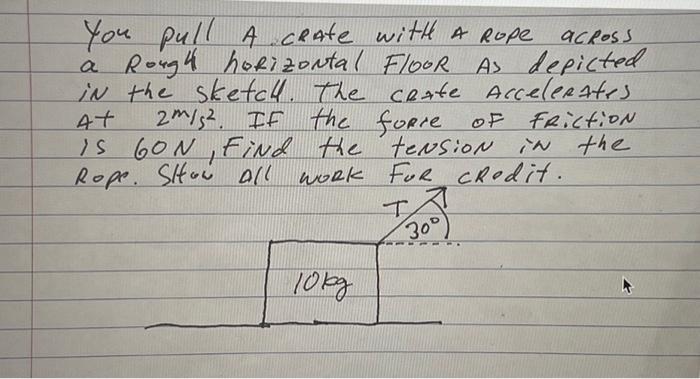 You pull A crate with A Rope across
a Rough horizontal Floor As depicted
in the sketch. The crate Accelerates
At 2 m/s². IF the force of friction
is 60 N, Find the tension in the
Rope. Show All work For credit.
T
30°
10 kg